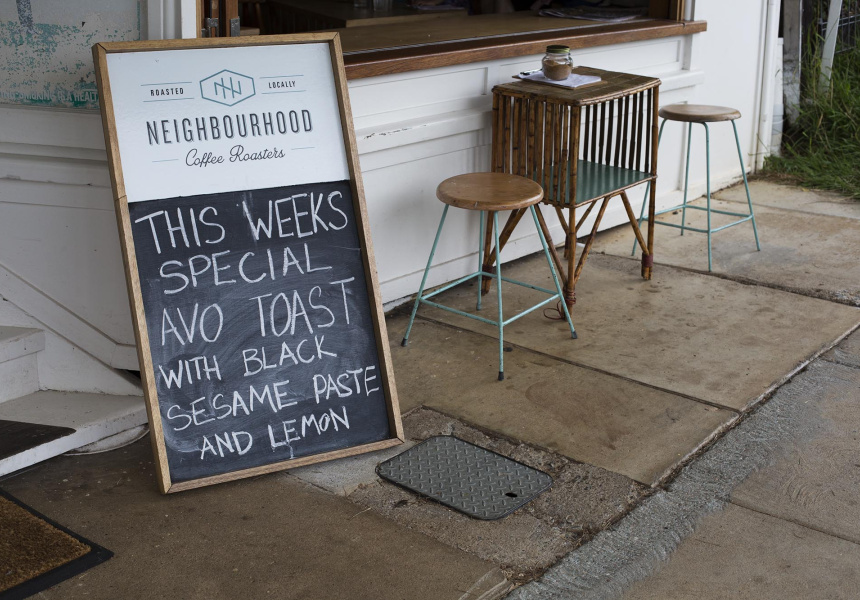 ROASTED LOCALLY
NEIGHBOURHOOD
Coffee Roasters
THIS WEEKS
SPECIAL
AVO TOAST
WITH BLACK
SESAME PASTE
AND LEMON